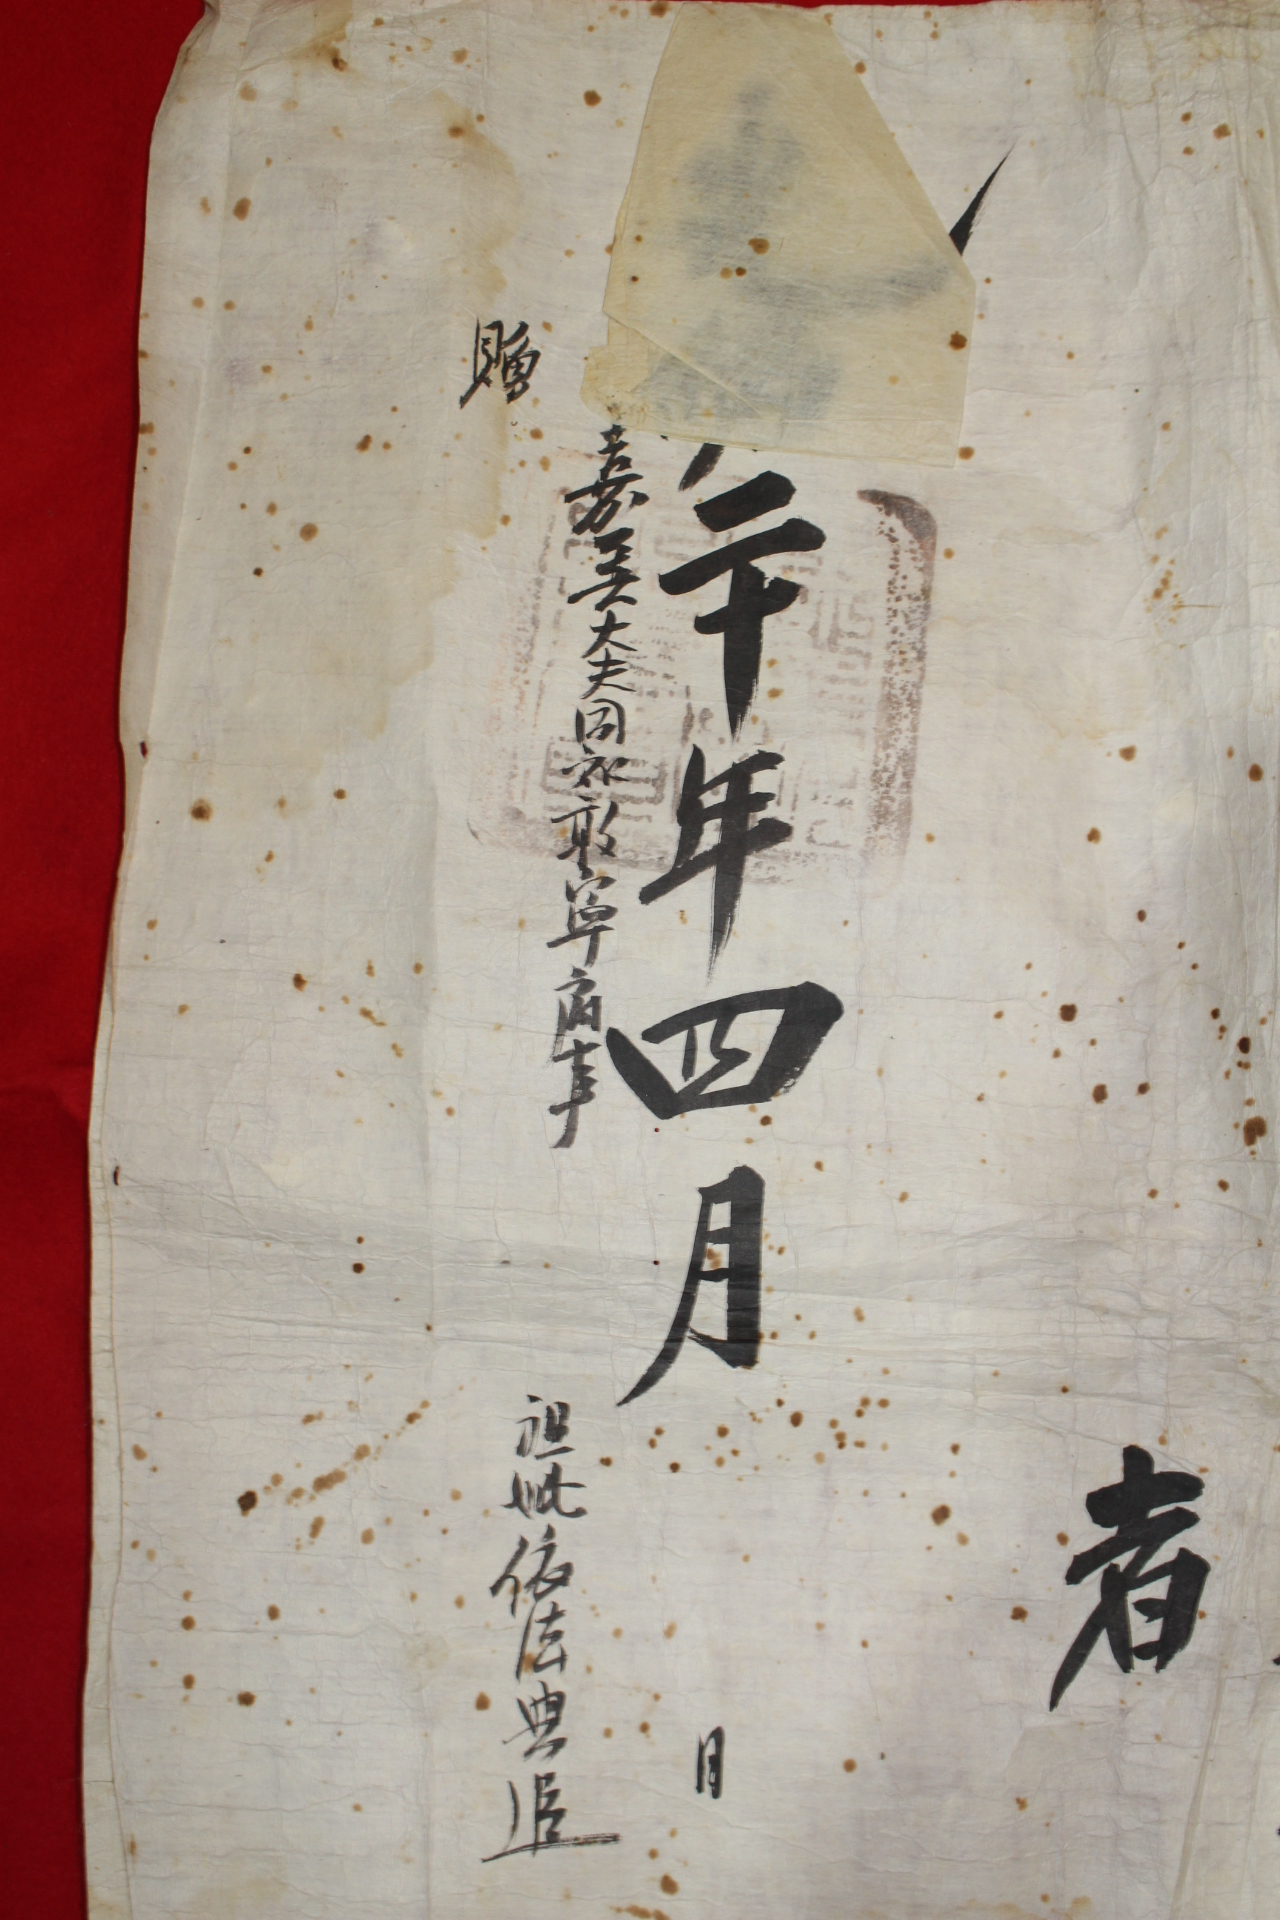 者
二十年四月 日
嘉義大夫同知敦寧府事 祖妣依法典追
贈